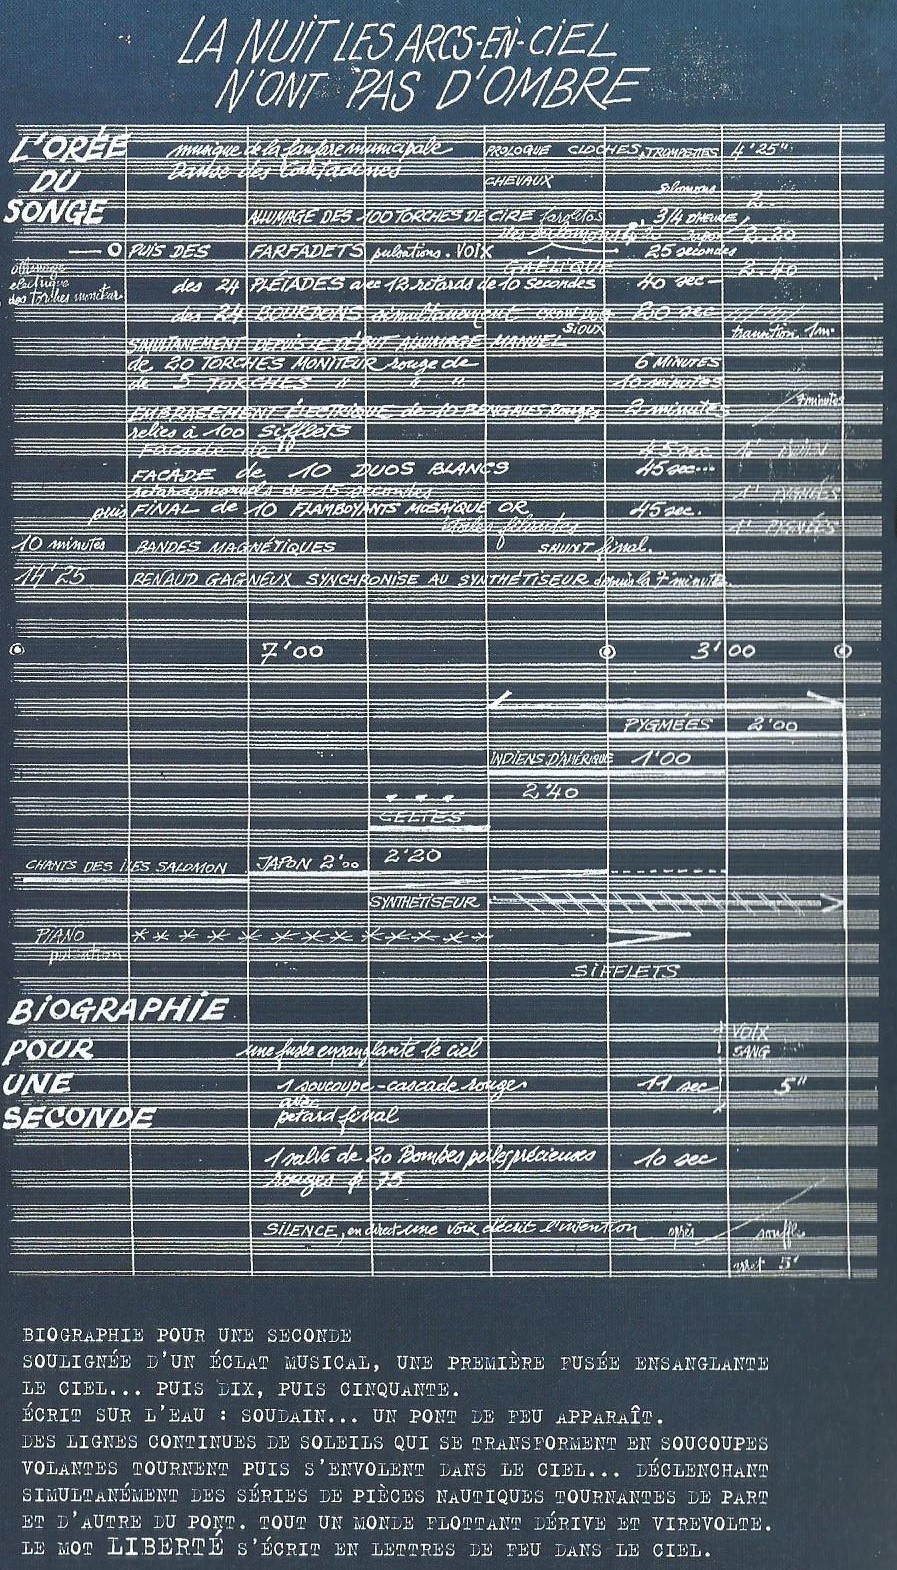 LA NUIT LES ARCS-EN-CIEL
N'ONT PAS D'OMBRE
L'ORÉE
DU
SONGE
musique de la fanfare municipale
PROLOGUE CLOCHES, TROMPETTES 4'25"
Danse des Contadines
CHEVAUX
Salomons
ALLUMAGE DES 100 TORCHES DE CIRE farolitos 3/4 D'HEURE
Japon 2.20
PUIS DES FARFADETS pulsations. VOIX 25 secondes
GAÉLIQUE 2.40
allumage
electrique
des torches moniteur
des 24 PLÉIADES avec 12 retards de 10 secondes 40 sec
des 24 BOURDONS simultanément CROW PUIS 20 sec
SIOUX
transition 1m
SIMULTANEMENT DEPUIS LE DÉBUT ALLUMAGE MANUEL
de 20 TORCHES MONITEUR rouge de 6 MINUTES
de 5 TORCHES " " " 10 minutes
7 minutes
EMBRASEMENT ÉLECTRIQUE de 10 BENGALES Rouges 2 minutes
reliés à 100 SIFFLETS
Facade de 45 sec 1' INDIEN
FACADE de 10 DUOS BLANCS 45 sec...
retards manuels de 15 secondes 1' PYGMÉES
puis FINAL de 10 FLAMBOYANTS MOSAÏQUE OR 45 sec.
étoiles filantes 1' PYGMÉES
10 minutes BANDES MAGNÉTIQUES SHUNT final.
14'25 RENAUD GAGNEUX SYNCHRONISE AU SYNTHÉTISEUR depuis la 7' minute.
7'00 3'00
PYGMÉES 2'00
INDIENS D'AMÉRIQUE 1'00
2'40
CELTES
2'20
CHANTS DES ÎLES SALOMON JAPON 2'00
SYNTHÉTISEUR
PIANO
pulsation
SIFFLETS
BIOGRAPHIE
POUR
UNE
SECONDE
VOIX
SANG
une fusée ensanglante le ciel
1 soucoupe-cascade rouge 11 sec 5"
avec
petard final
1 salve de 20 Bombes perles précieuses 10 sec
rouges φ 75
SILENCE, en direct une voix décrit l'intention après souffle
arret 5'
BIOGRAPHIE POUR UNE SECONDE
SOULIGNÉE D'UN ÉCLAT MUSICAL, UNE PREMIÈRE FUSÉE ENSANGLANTE
LE CIEL... PUIS DIX, PUIS CINQUANTE.
ÉCRIT SUR L'EAU : SOUDAIN... UN PONT DE FEU APPARAÎT.
DES LIGNES CONTINUES DE SOLEILS QUI SE TRANSFORMENT EN SOUCOUPES
VOLANTES TOURNENT PUIS S'ENVOLENT DANS LE CIEL... DÉCLENCHANT
SIMULTANÉMENT DES SÉRIES DE PIÈCES NAUTIQUES TOURNANTES DE PART
ET D'AUTRE DU PONT. TOUT UN MONDE FLOTTANT DÉRIVE ET VIREVOLTE.
LE MOT LIBERTÉ S'ÉCRIT EN LETTRES DE FEU DANS LE CIEL.